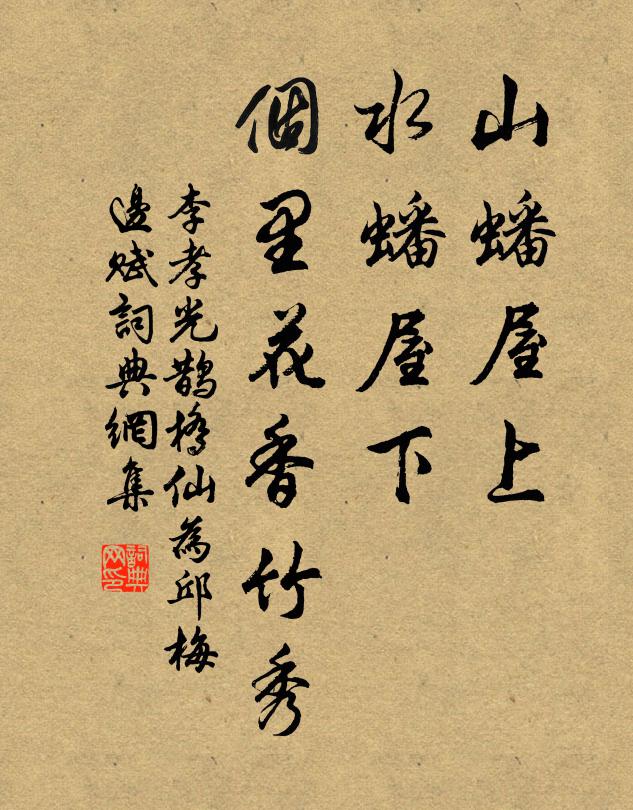 山蟠屋上
水蟠屋下
個里花香竹秀
李孝光鵲橋仙為邱梅
邊賦詞典網集
詞典
网印